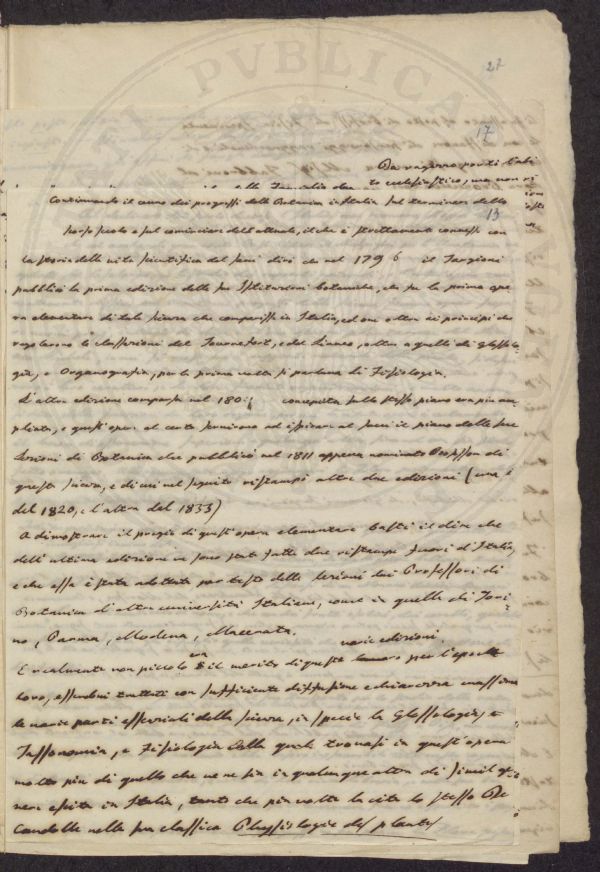 27
17
Da ragazzo portò l'abi
della Famiglia to ecclesiastico, ma non vi
Continuando il cenno dei progressi della Botanica in Italia sul terminare dello
13
scorso secolo e sul cominciare dell'attuale, il che è strettamente connesso con
la storia della vita scientifica del Savi dirò che nel 1796 il Targioni
pubblicò la prima edizione delle sue Istituzioni botaniche, che fu la prima ope
ra elementare di tale scienza che comparisse in Italia, ed ove oltre ai principi che
regolarono le classazioni del Tournefort, e del Linneo, oltre a quelli di Glossolo
gia, e Organografia, per la prima volta si parlava di Fisiologia.
L'altra edizione comparsa nel 180 concepita sullo stesso piano era più am
pliata, e quest'opera al certo servirono ad ispirare al Savi il piano delle sue
Lezioni di Botanica che pubblicò nel 1811 appena nominato Professore di
questa scienza, e di cui nel seguito ristampò altre due edizioni (una è
del 1820, e l'altra del 1833)
A dimostrare il pregio di quest'opera elementare basti il dire che
dell'ultima edizione ne sono state fatte due ristampe fuori d'Italia,
e che essa è stata adottata per testo delle lezioni dai Professori di
Botanica d'altre università Italiane, come in quelle di Tori-
no, Parma, Modena, Macerata.
varie edizioni
E realmente non piccolo era il merito di queste per l'epoche
loro, essendovi trattati con sufficiente diffusione e chiarezza massima
le varie parti essenziali della scienza, in specie la Glossologia, e
Tassonomia, e Fisiologia della quale trovasi in quest'opera
molto più di quello che ve ne sia in qualunque altra di simil ge-
nere esista in Italia, tanto che più volte la cita lo stesso De
Candolle nella sua classica Physiologie des plantes